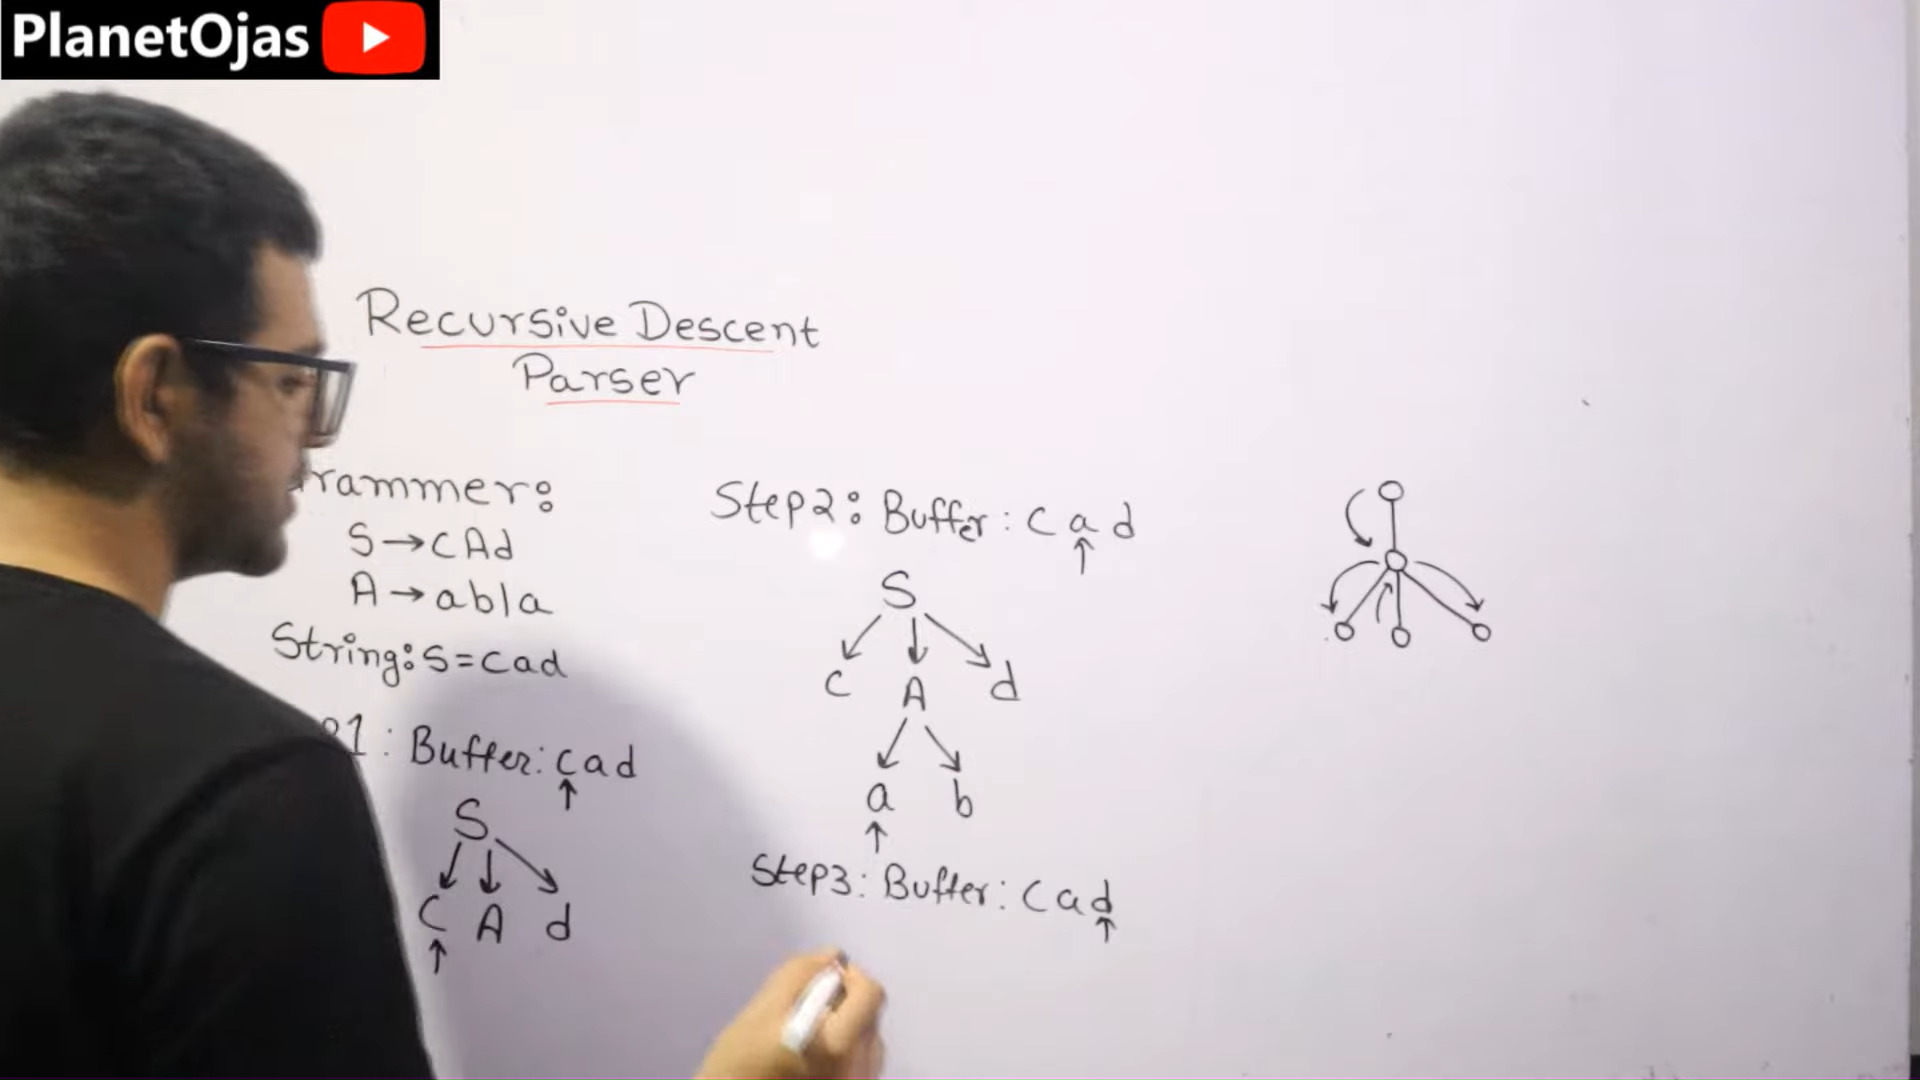 PlanetOjas
Recursive Descent
Parser
rammer:
S→cAd
A→ab|a
String: S=cad
1: Buffer: cad
↑
S
C A d
↑
Step2: Buffer: cad
↑
S
C A d
a b
↑
Step3: Buffer: cad
↑